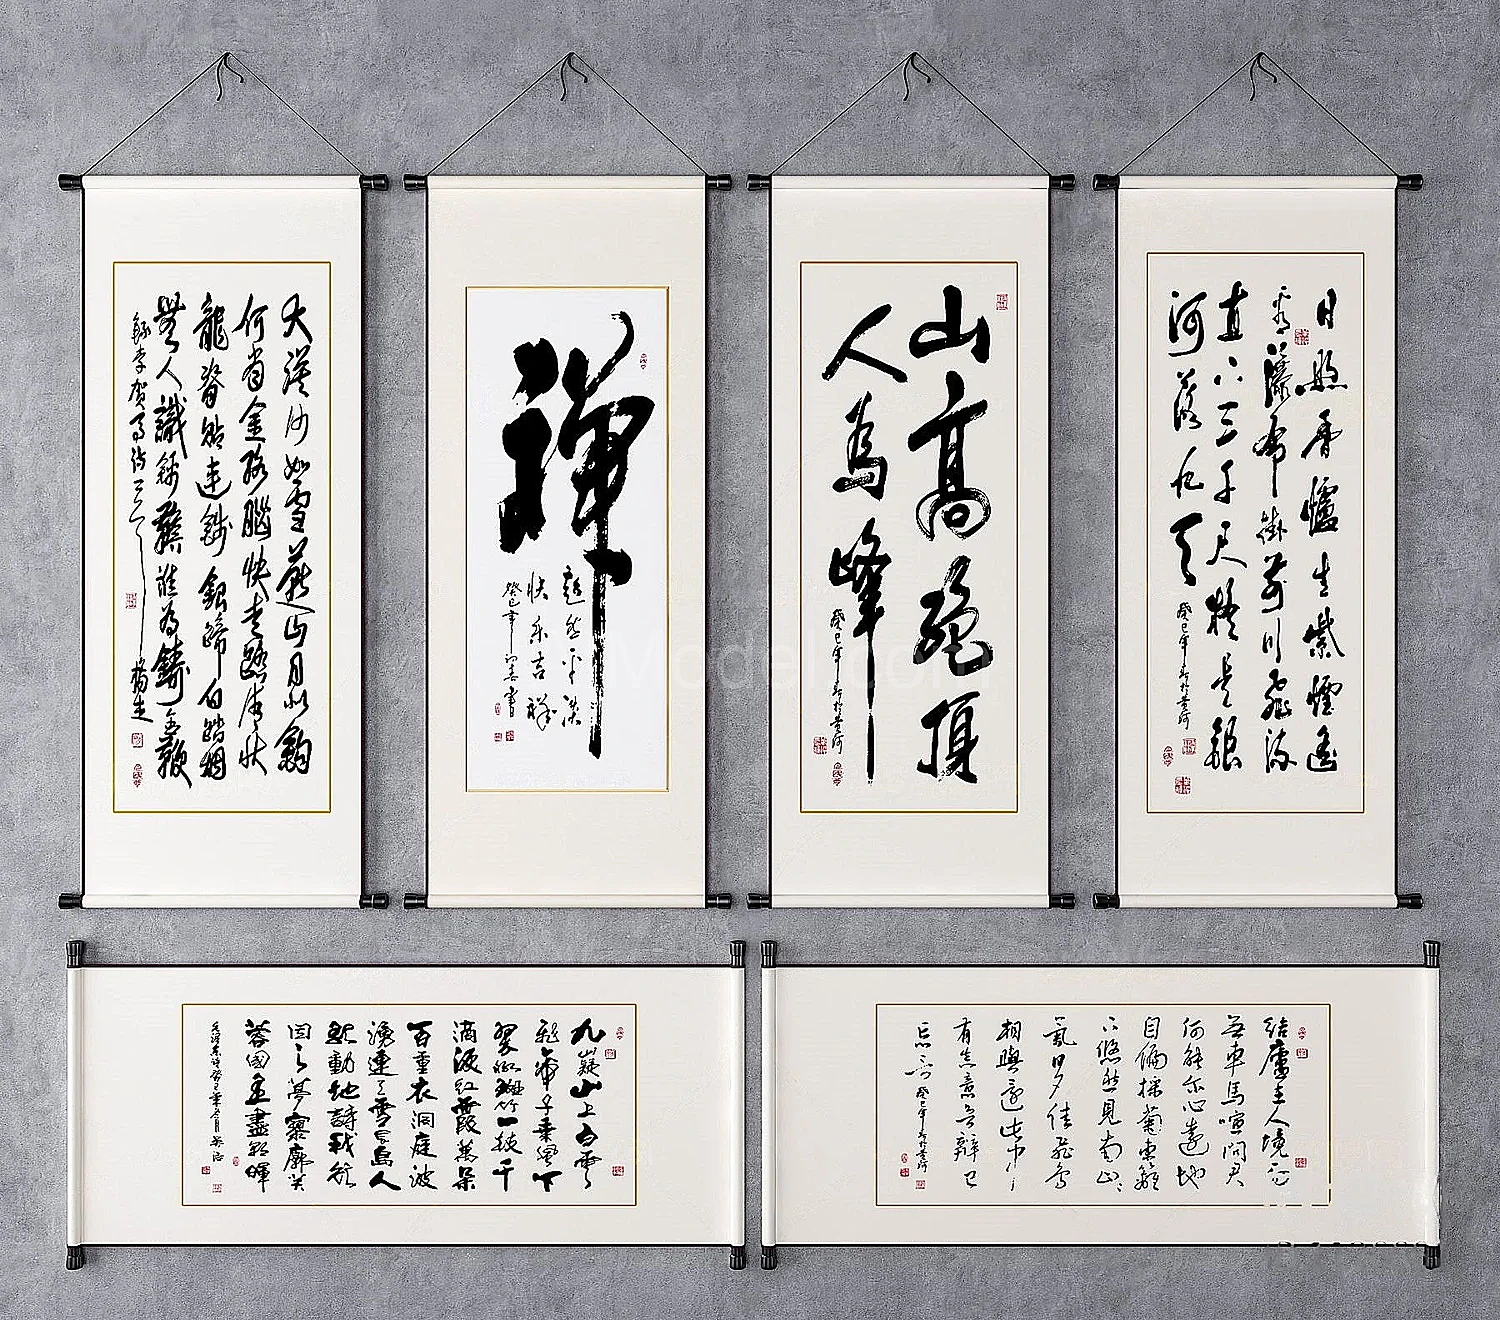 大漠沙如雪燕山月似鈎
何當金絡腦快走踏清秋
龍脊貼連錢銀蹄白踏烟
無人織錦韂誰為鑄金鞭
錄李賀馬詩二首
禪
超然平淡
快樂吉祥
癸巳年 書
山高絕頂
人為峰
癸巳年 於黃河
日照香爐生紫煙遙
看瀑布掛前川飛流
直下三千尺疑是銀
河落九天
癸巳年 於黃河
九嶷山上白雲
飛帝子乘風下
翠微斑竹一枝千
滴淚紅霞萬朵
百重衣洞庭波
湧連天雪長島人
歌動地詩我欲
因之夢寥廓芙
蓉國里盡朝暉
毛澤東詩癸巳年
結廬在人境而
無車馬喧問君
何能爾心遠地
自偏採菊東籬
下悠然見南山山
氣日夕佳飛鳥
相與還此中
有真意欲辯已
忘言 癸巳年 於黃河
Model.com